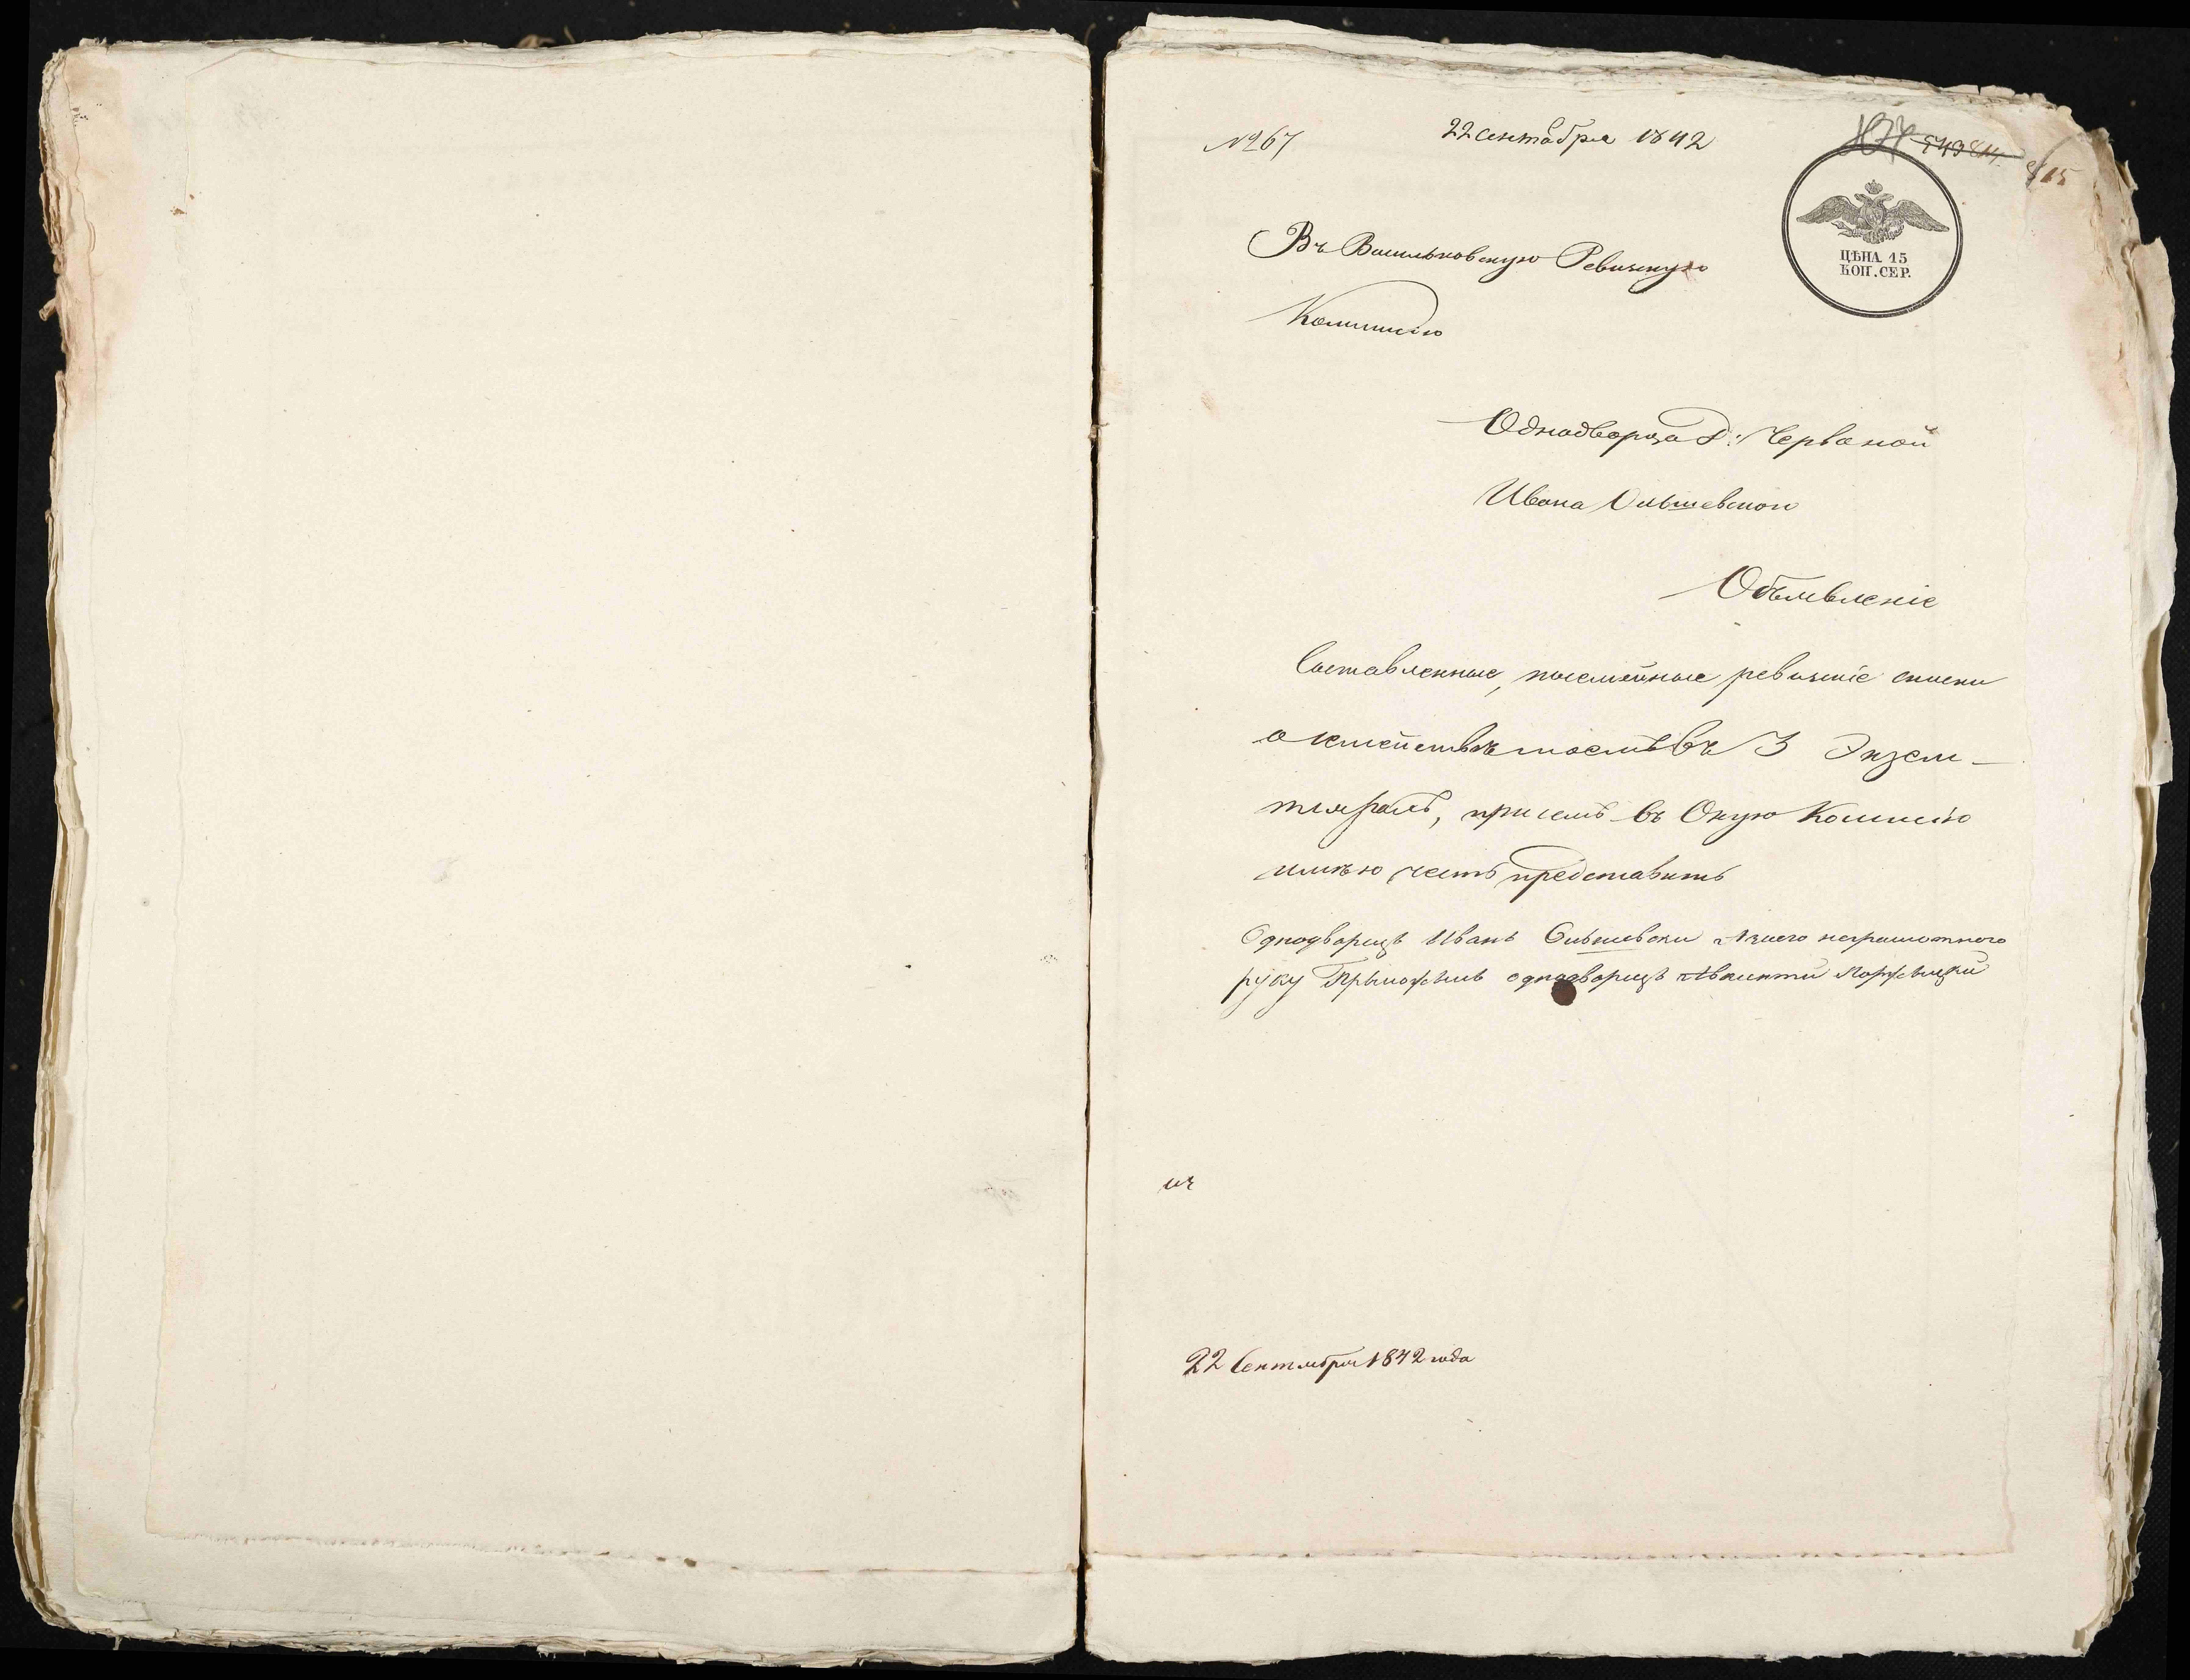 № 267
22 Сентября 1842
815
ЦѢНА 15
КОП. СЕР.
Въ Васильковскую Ревизкую
Коммисію
Однодворца Д: Червоной
Ивана Ольшевского
Объявленіе
Составленные, посемейные ревизкіе списки
о семействѣ моемъ въ 3 Экзем-
плярахъ, при семъ въ Оную Коммисію
имѣю честь представить
Однодворецъ Иванъ Ольшевски Азаего неграмотного
руку Прыложилъ однодворецъ Авкенти
22 Сентября 1842 года